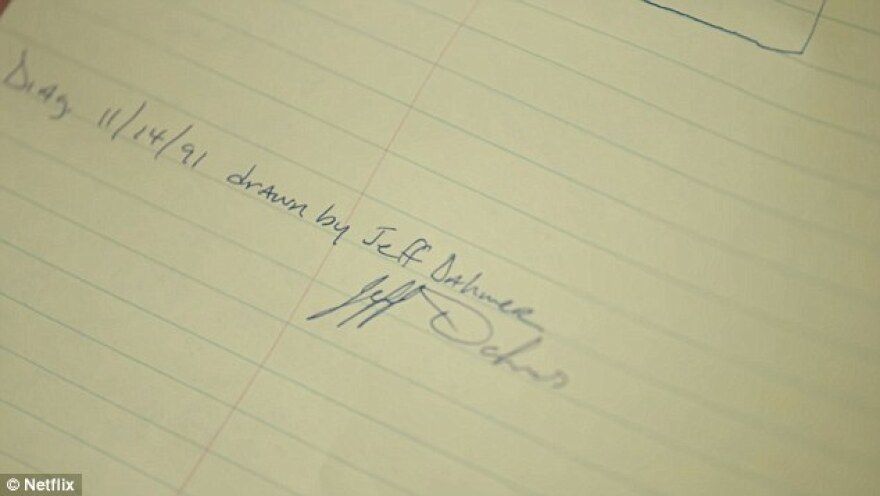 Diag 11/14/91 drawn by Jeff Dahmer
Jeff Dahmer
© Netflix